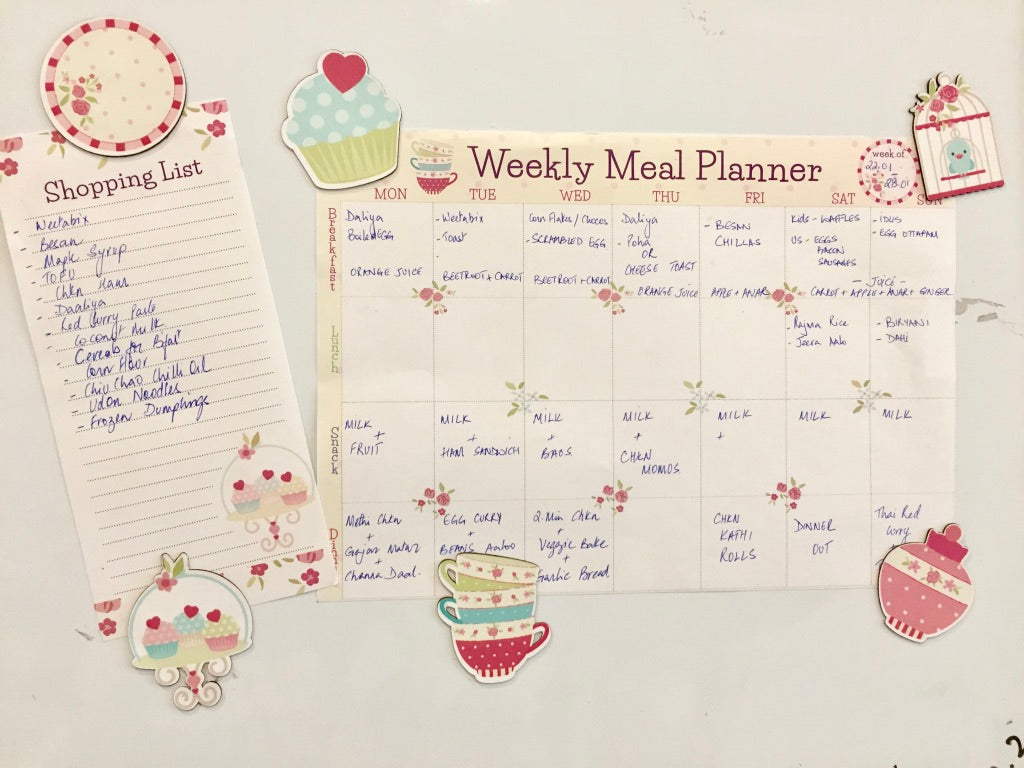 Shopping List
- Weetabix
- Besan
- Maple Syrup
- TOFU
- Chkn Ham
- Daaliya
- Red Curry Paste
- Coconut Milk
- Cereals for B'fast
- Corn Flour
- Chiu Chao Chilli Oil
- Udon Noodles
- Frozen Dumplings
Weekly Meal Planner
week of
22.01
-
28.01
MON TUE WED THU FRI SAT SUN
Breakfast
Daliya
Boiled EGG
ORANGE JUICE
- Weetabix
- Toast
-
BEETROOT + CARROT
Corn Flakes / Chocos
- SCRAMBLED EGG
BEETROOT + CARROT
Daliya
- Poha
OR
CHEESE TOAST
ORANGE JUICE
- BESAN
CHILLAS
APPLE + ANAR
Kids - WAFFLES
US - EGGS
BACON
SAUSAGES
- IDLIS
- EGG OTTAPAM
- JUICE -
CARROT + APPLE + ANAR + GINGER
Lunch
- Rajma Rice
- Jeera Aalo
- BIRYANI
- DAHI
Snack
MILK
+
FRUIT
MILK
+
HAM SANDWICH
MILK
+
BAOS
MILK
+
CHKN
MOMOS
MILK
+
MILK
MILK
Methi Chkn
+
Gajar Matar
+
Channa Daal.
EGG CURRY
+
BEANS Aaloo
2-Min Chkn
+
Veggie Bake
+
Garlic Bread
CHKN
KATHI
ROLLS
DINNER
OUT
Thai Red
Curry